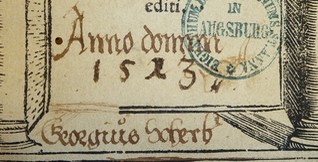 editi
IN
AUGSBURG
Anno domini
1523
Georgius Scherb